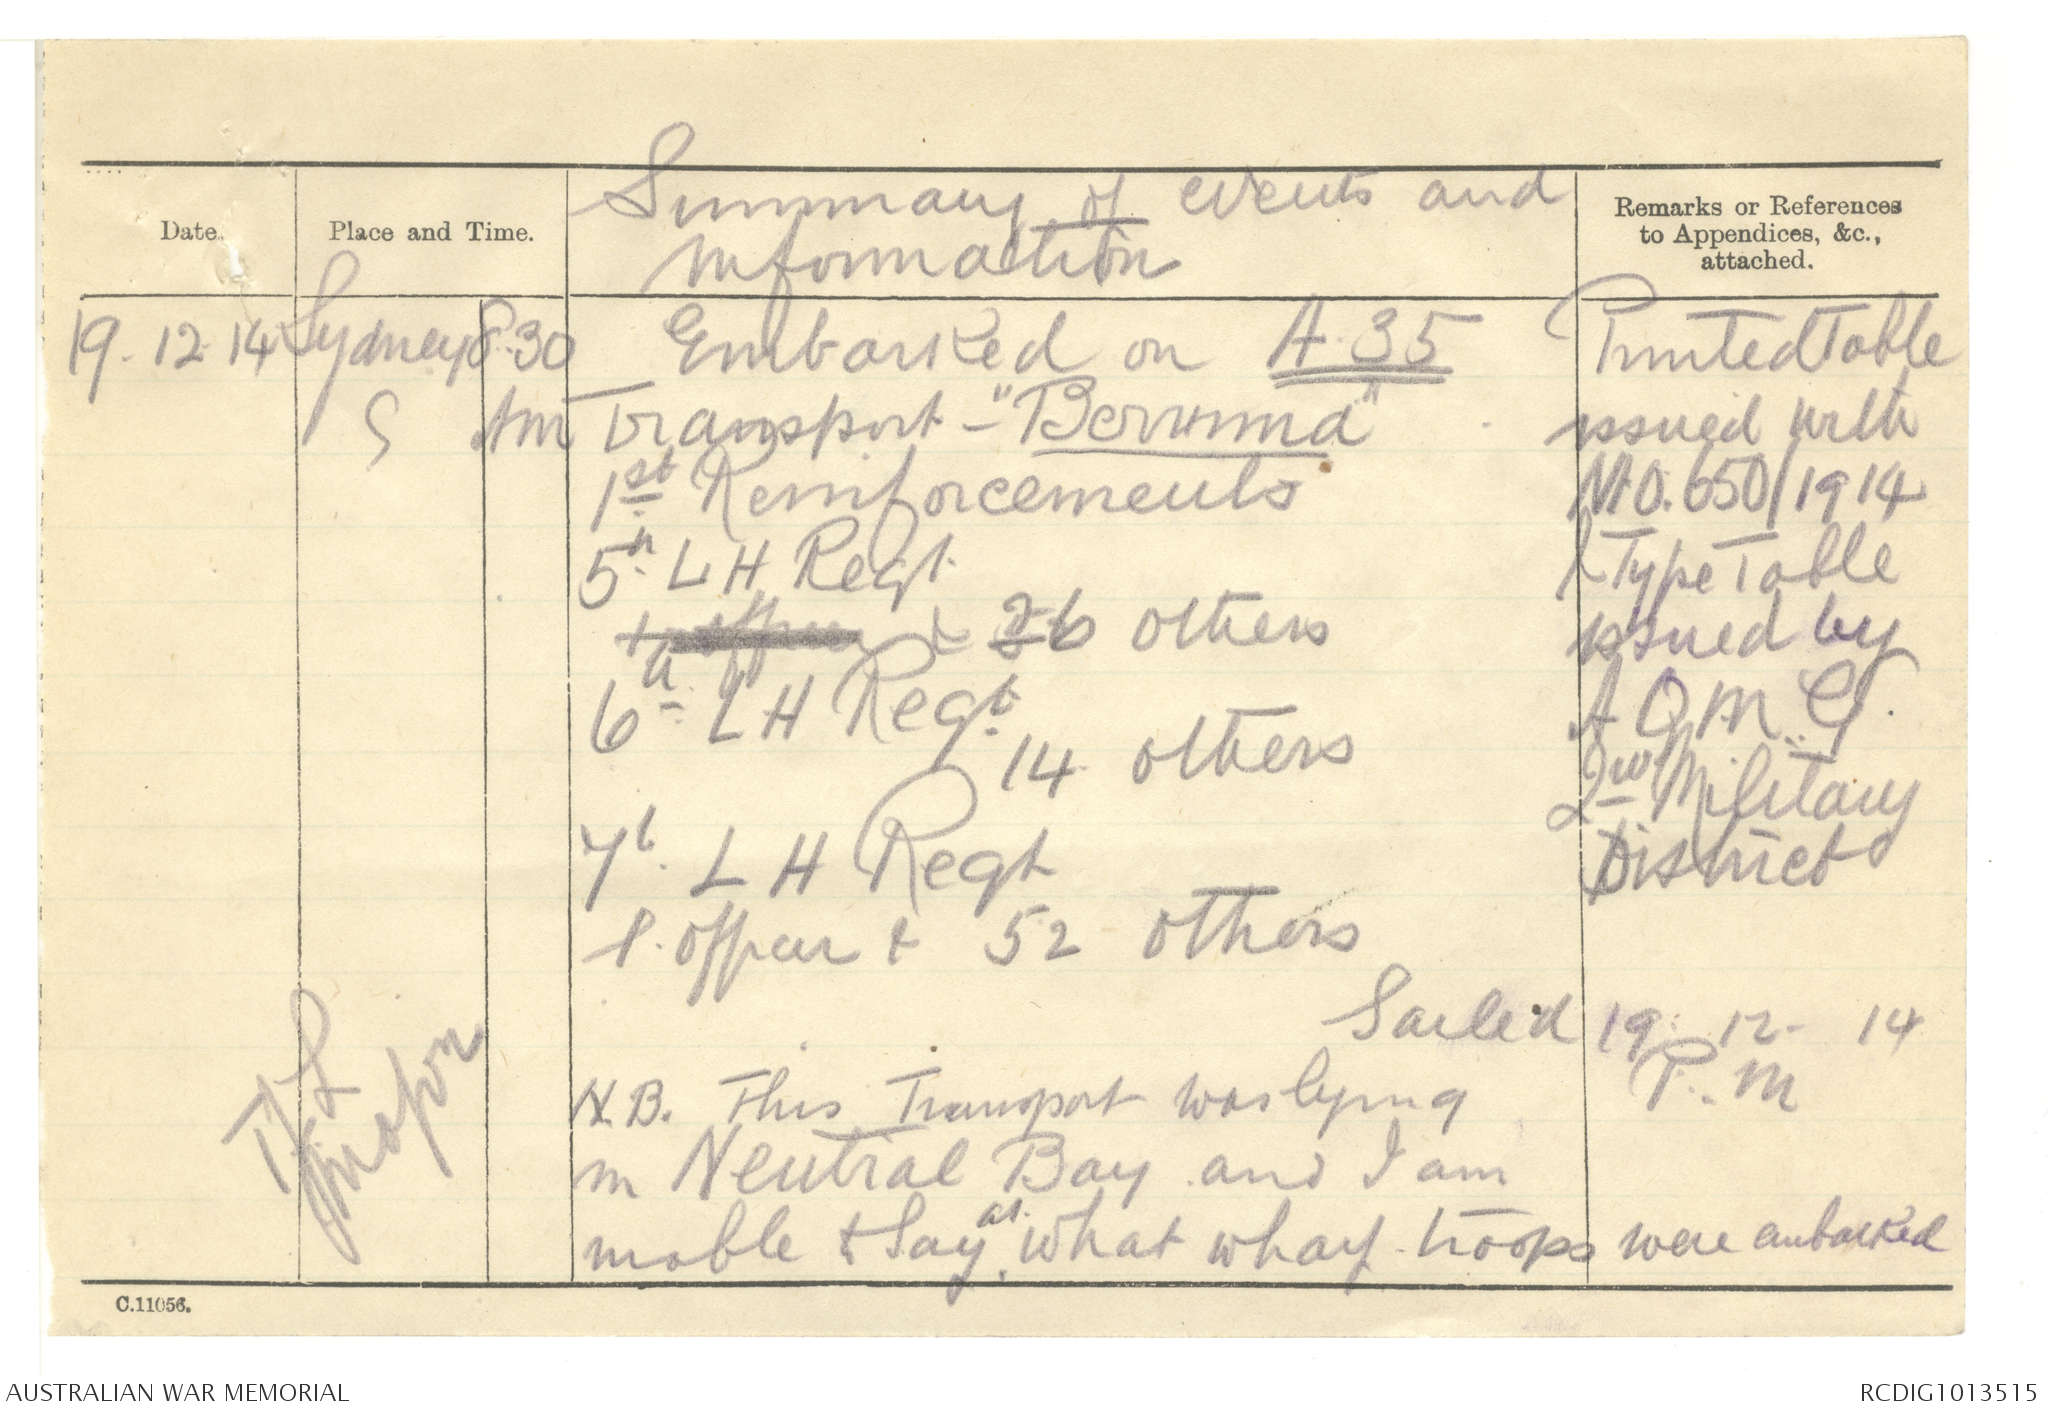 Summary of events and
information
Date.
Place and Time.
Remarks or References
to Appendices, &c.,
attached.
19. 12. 14 Sydney 8.30
Am
Embarked on A. 35
Transport - "Berrima"
1st Reinforcements
5th L H Regt.
& 26 others
6th L H Regt.
14 others
7th L H Regt
1. officer & 52 others
Printed Table
issued with
M.O. 650/1914
& Type Table
issued by
A Q M. G.
2nd Military
District
Sailed 19. 12. 14
P. M
N. B. This Transport was lying
in Neutral Bay and I am
unable to say at. what wharf troops were embarked
C.11056.
AUSTRALIAN WAR MEMORIAL
RCDIG1013515